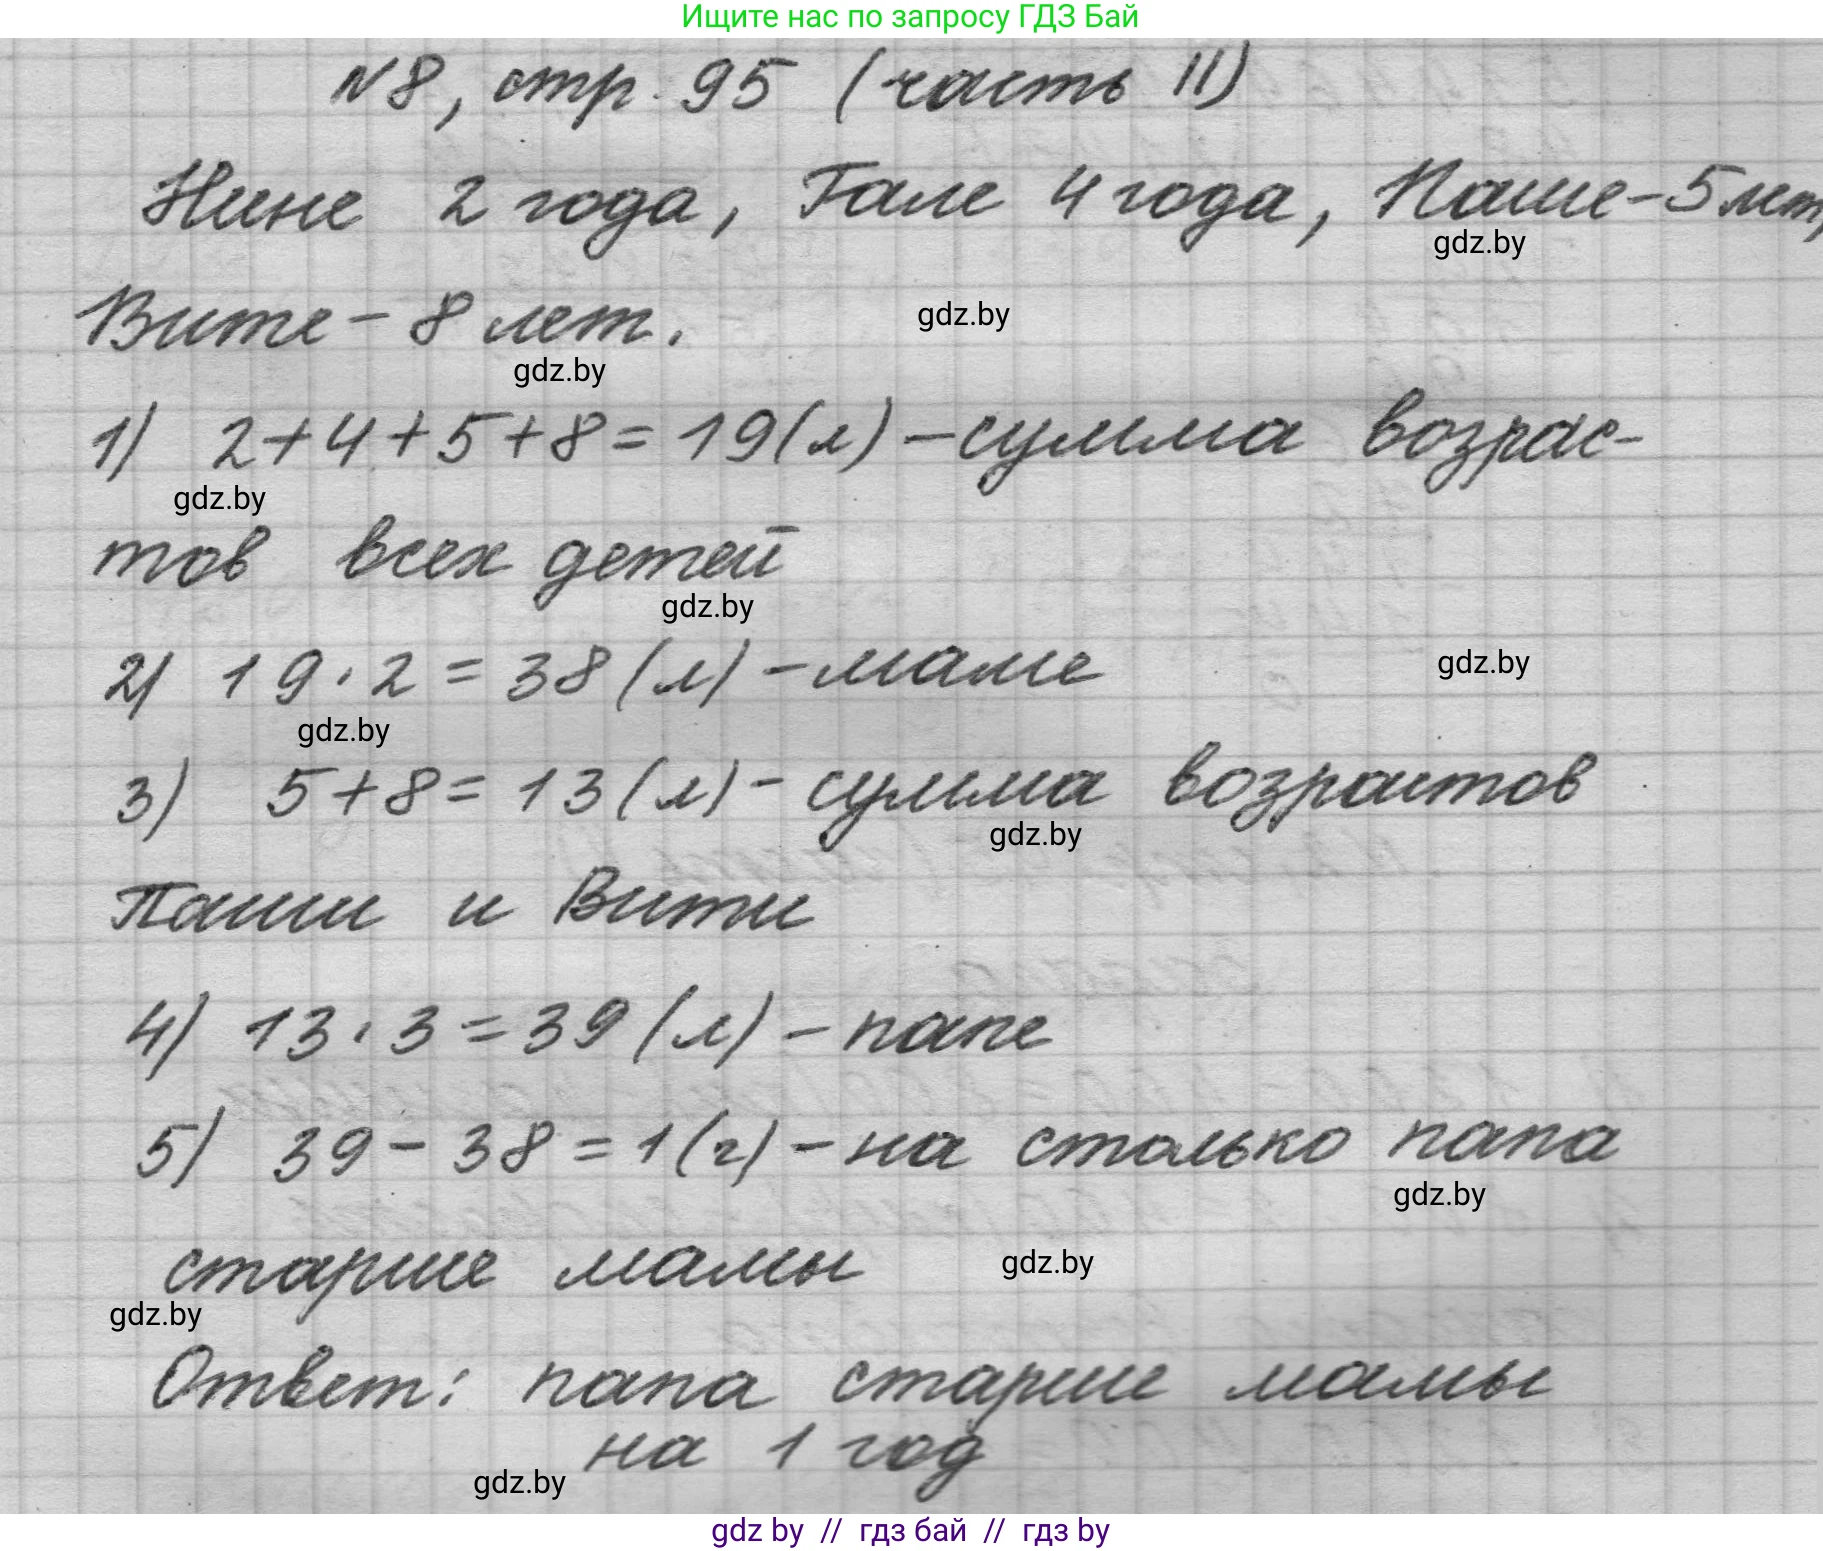 Ищите нас по запросу ГДЗ Бай
№8, стр. 95 (часть II)
Нине 2 года, Гале 4 года, Паше - 5 лет,
gdz.by
Вите - 8 лет.
gdz.by
gdz.by
1) 2+4+5+8=19(л) - сумма возрас-
gdz.by
тов всех детей
gdz.by
2) 19·2=38(л) - маме
gdz.by
gdz.by
3) 5+8=13(л) - сумма возрастов
gdz.by
Паши и Вити
4) 13·3=39(л) - папе
5) 39-38=1(г) - на столько папа
gdz.by
старше мамы
gdz.by
gdz.by
Ответ: папа старше мамы
на 1 год
gdz.by
gdz by // гдз бай // гдз by